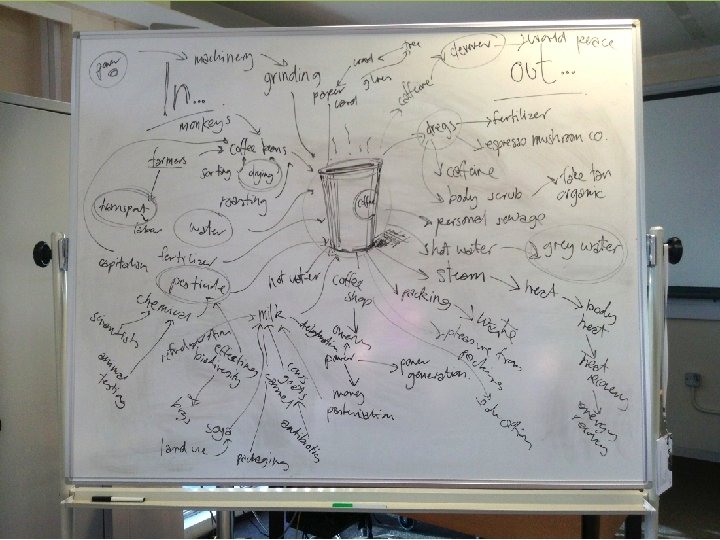 power
machinery
grinding
paper
card
wood
tree
glues
caffeine
world peace
In...
OUT...
monkeys
farmers
coffee beans
sorting
drying
roasting
transport
labour
water
capitalism
fertilizer
pesticide
hot water
coffee
shop
coffee
dregs
fertilizer
espresso mushroom co.
caffeine
body scrub
fake tan
organic
personal sewage
hot water
grey water
steam
heat
body
heat
heat
recovery
energy
packing
waste
chemical
scientists
animal
testing
effecting
biodiversity
bugs
milk
soya
land use
packaging
cows
goats
antibiotics
pasteurisation
energy
power
power
generation
money